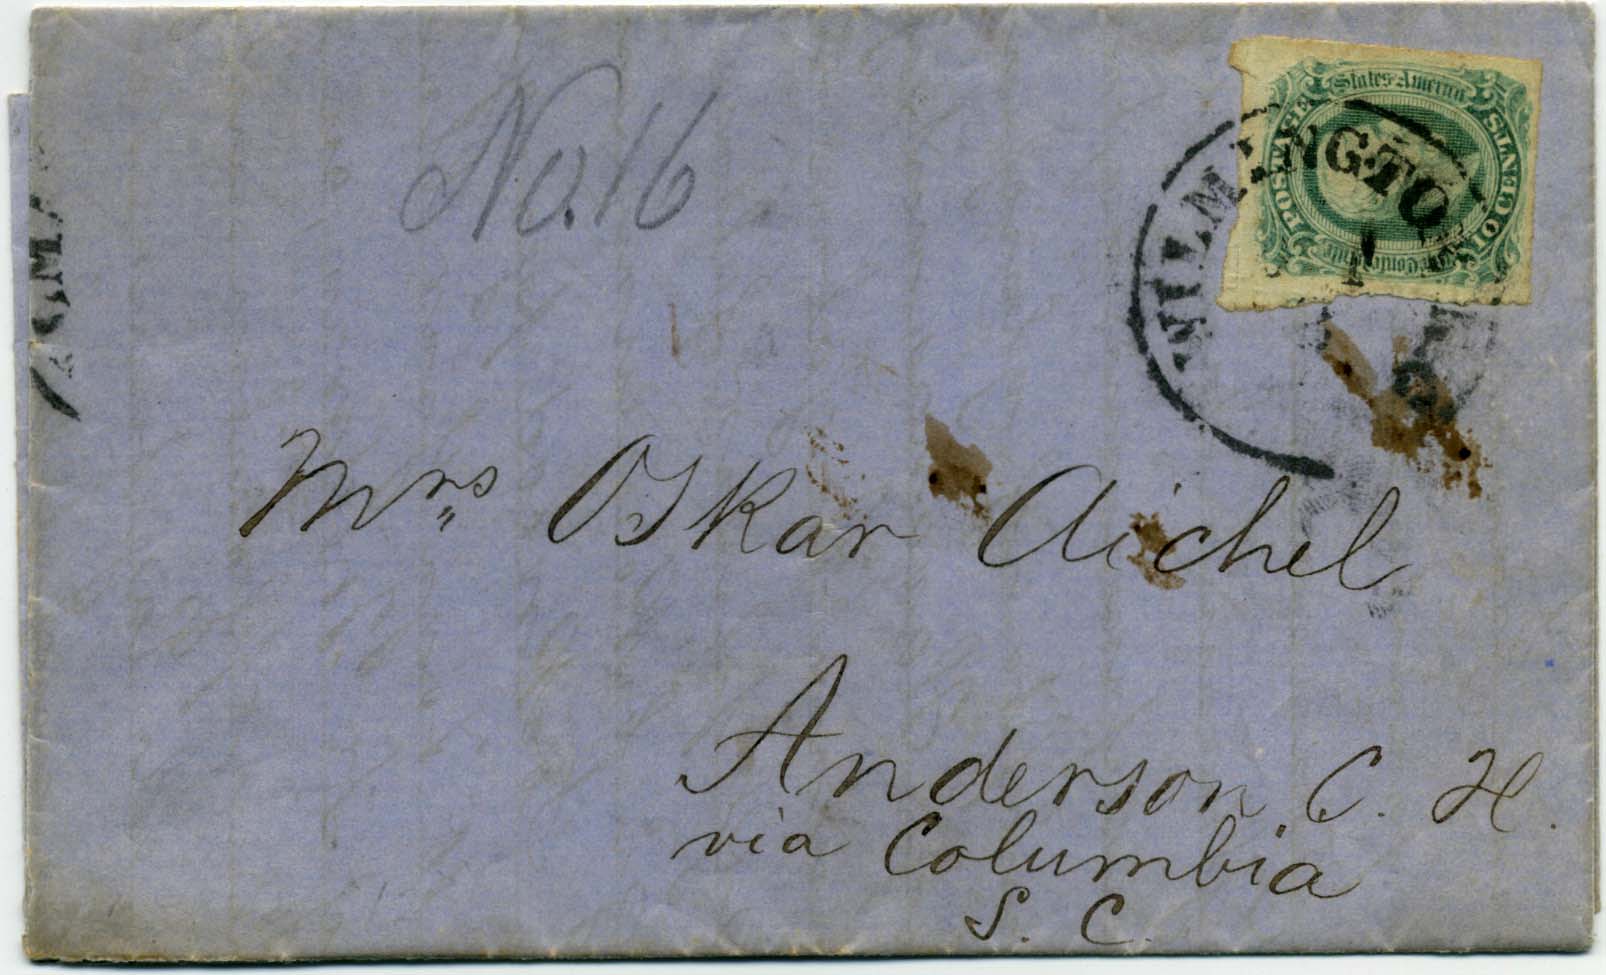 No. 16
States America
POSTAGE
10 CENTS
WILMINGTON
Mrs Oskar Aichel
Anderson C. H.
via Columbia
S. C.